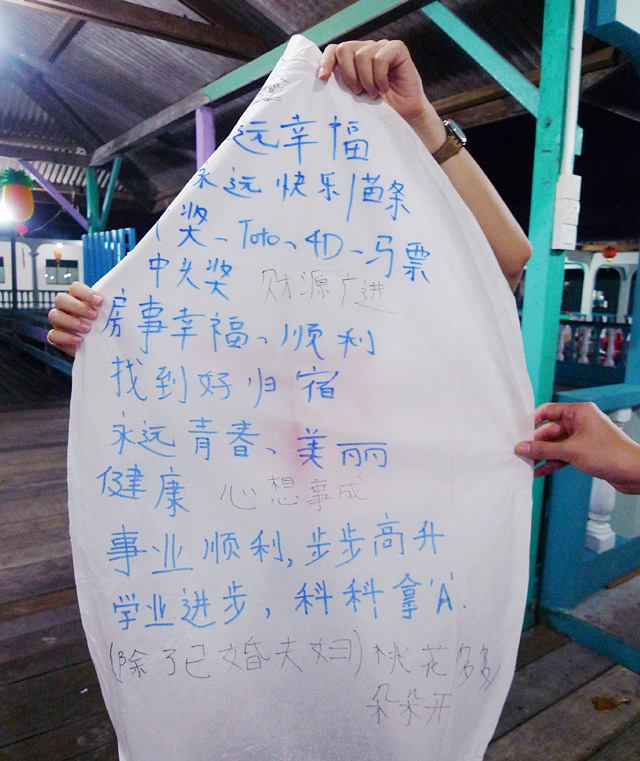 远幸福
永远快乐/苗条
奖、Toto、4D、马票
中头奖 财源广进
房事幸福、顺利
找到好归宿
永远青春、美丽
健康 心想事成
事业顺利,步步高升
学业进步，科科拿'A'.
(除了已婚夫妇)桃花多多
朵朵开